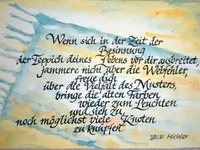 Wenn sich in der Zeit der
Besinnung
der Teppich deines Lebens vor dir ausbreitet,
jammere nicht über die Webfehler,
freue dich
über die Vielfalt des Musters,
bringe die alten Farben
wieder zum Leuchten
und sieh zu,
noch möglichst viele Knoten
zu knüpfen.
Michler